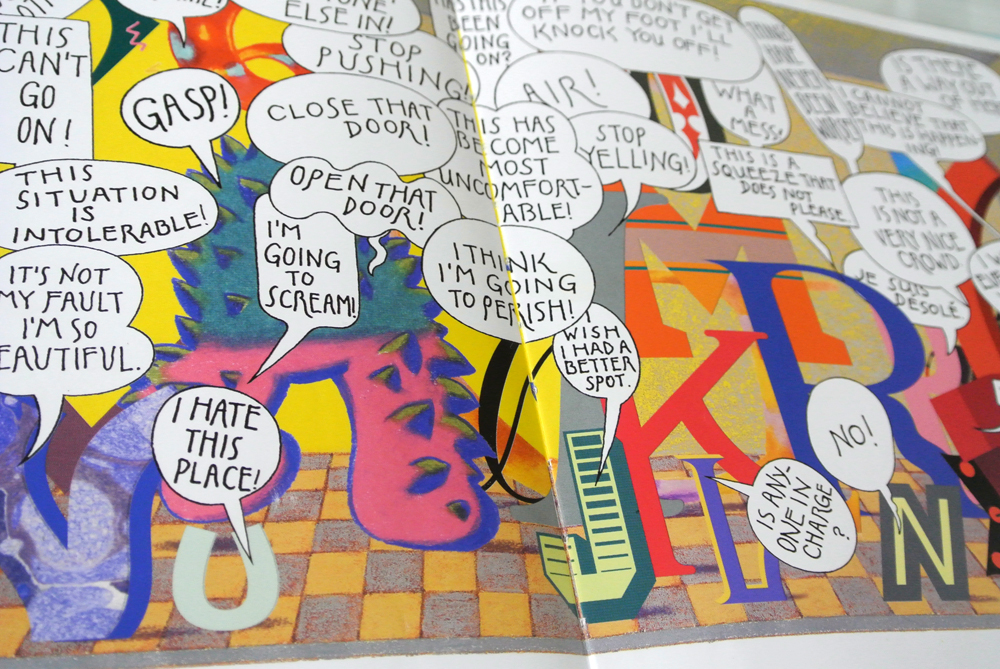 ELSE IN!
THIS
CAN'T
GO
ON!
GASP!
STOP
PUSHING!
CLOSE THAT
DOOR!
THIS
SITUATION
IS
INTOLERABLE!
OPEN THAT
DOOR!
I'M
GOING
TO
SCREAM!
IT'S NOT
MY FAULT
I'M SO
BEAUTIFUL.
I HATE
THIS
PLACE!
U
BEEN
GOING
ON?
YOU DON'T GET
OFF MY FOOT I'LL
KNOCK YOU OFF!
AIR!
THIS HAS
BECOME
MOST
UNCOMFORT-
ABLE!
STOP
YELLING!
I THINK
I'M GOING
TO PERISH!
I
WISH
I HAD A
BETTER
SPOT.
WHAT
A
MESS!
THIS IS A
SQUEEZE THAT
DOES NOT
PLEASE.
IS THERE
A WAY OUT
OF HERE
I CANNOT
BELIEVE THAT
THIS IS HAPPEN-
ING!
THIS
IS NOT A
VERY NICE
CROWD
JE SUIS
DÉSOLÉ
NO!
IS ANY-
ONE IN
CHARGE
?
J
K
L
R
N